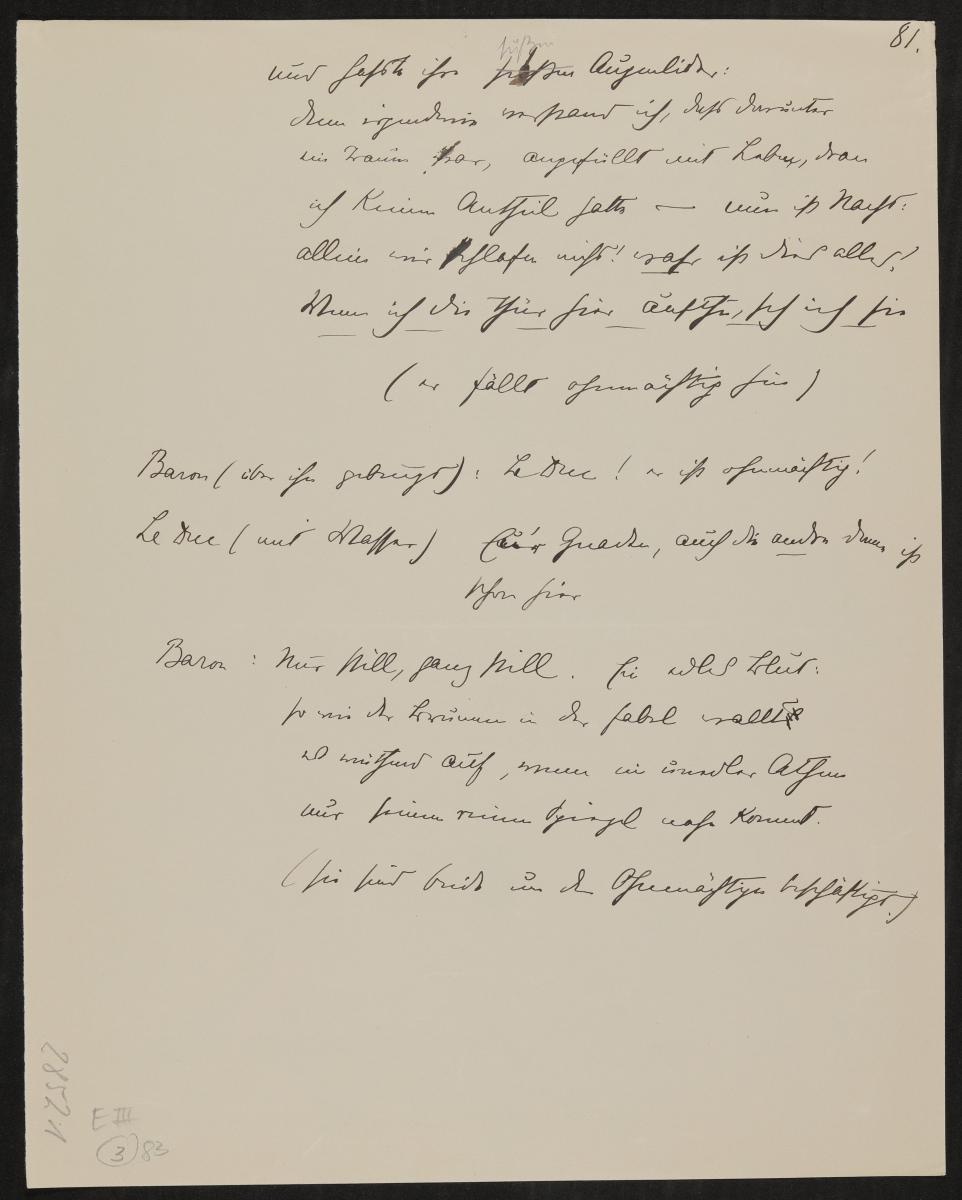 81.
süßen
und haßte ihre süßen Augenlider:
denn irgendwie verstand ich, dass darunter
ein Traum war, angefüllt mit Leben, dran
ich keinen Antheil hatte — nun ist Nacht:
allein wir schlafen nicht! wahr ist dies alles!
Wenn ich die Thür hier aufthu, seh ich sie
(er fällt ohnmächtig hin)
Baron (über ihn gebeugt): Le Duc! er ist ohnmächtig!
Le Duc (mit Wasser) Euer Gnaden, auch die andre Dame ist
schon hier
Baron: Nur still, ganz still. Sein edles Blut:
so wie der Brunnen in der Fabel wallt
es wüthend auf, wenn ein unedler Athem
nur seinem reinen Spiegel nahe kommt.
(sie sind beide um den Ohnmächtigen beschäftigt.)
E III
3 83